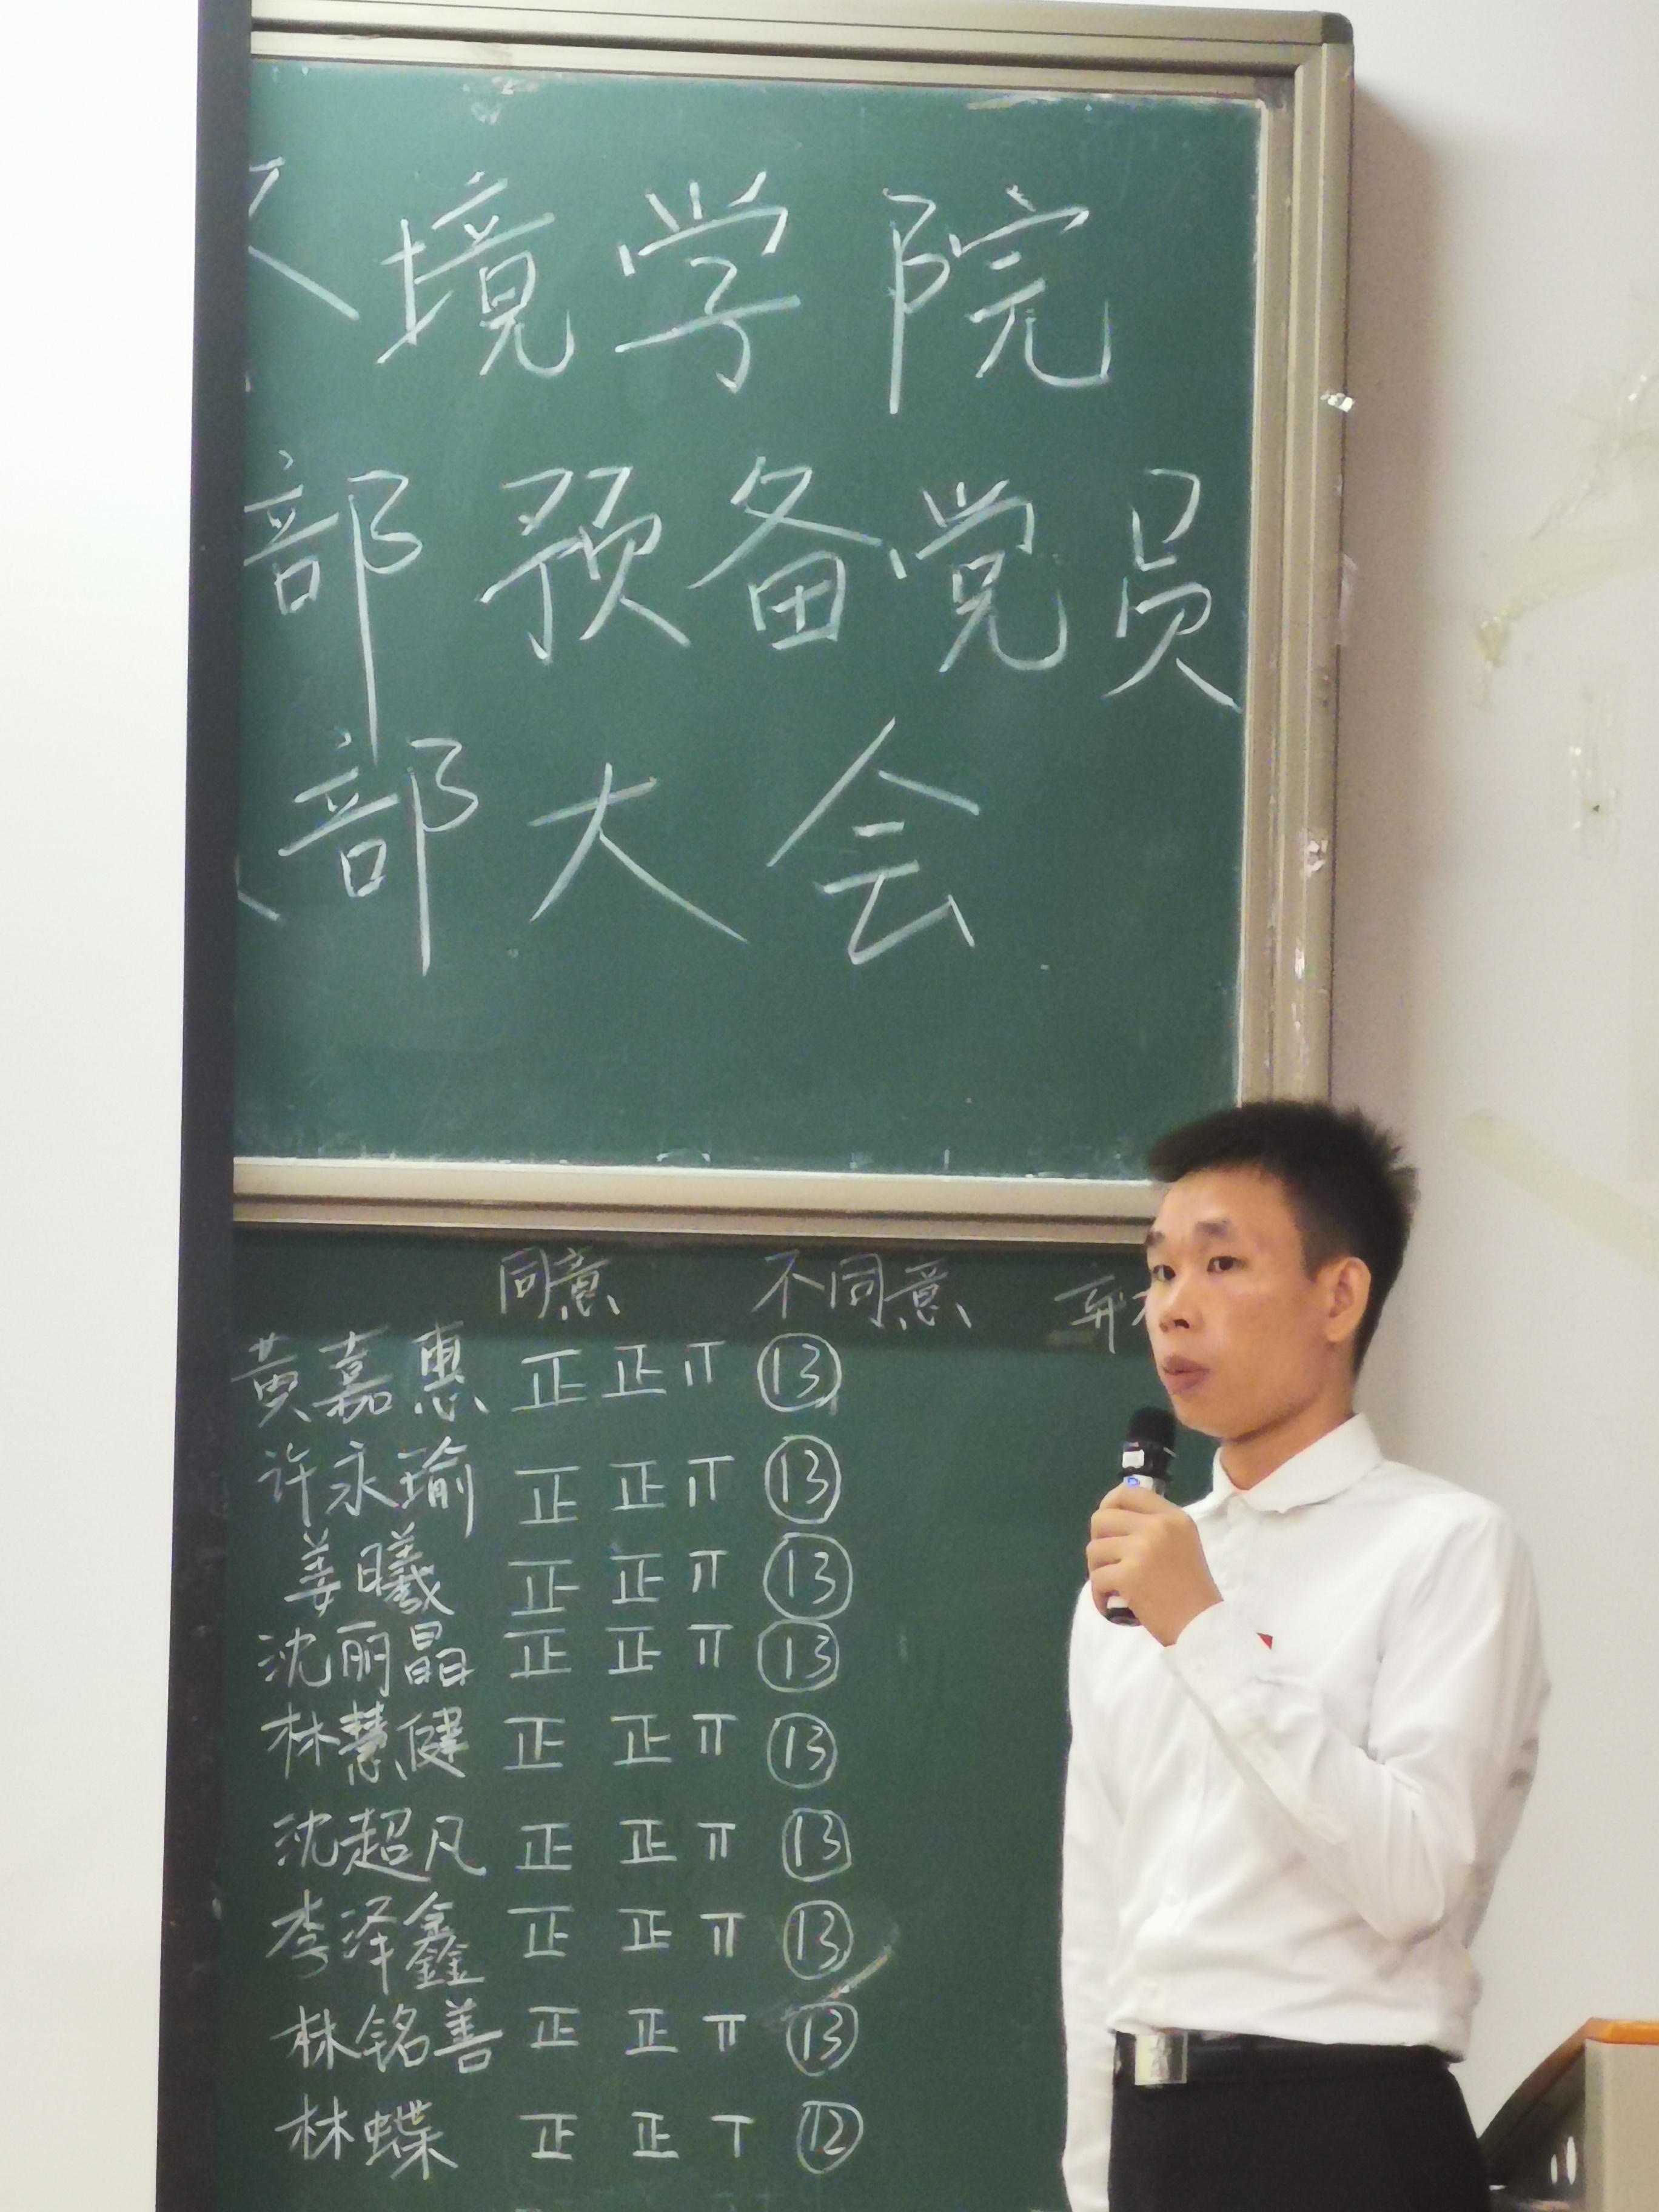 境学院
部预备党员
部大会
同意 不同意 弃
黄嘉惠 正正丅 13
许永瑜 正正丅 13
姜曦 正正丅 13
沈丽晶 正正丅 13
林慧健 正正丅 13
沈超凡 正正丅 13
李泽鑫 正正丅 13
林铭善 正正丅 13
林蝶 正正丅 12